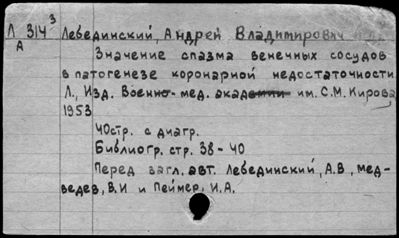 Л 314³ Лебединский, Андрей Владимирович
А
Значение спазма венечных сосудов
в патогенезе коронарной недостаточности
Л., Изд. Военно-мед. академии им. С.М. Кирова
1953
40стр. с диагр.
Библиогр. стр. 38-40
Перед загл. авт. Лебединский, А.В., Мед-
ведев, В.И и Пеймер, И.А.